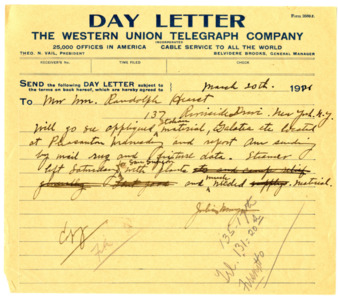 Form 2589 B
DAY LETTER
THE WESTERN UNION TELEGRAPH COMPANY
INCORPORATED
25,000 OFFICES IN AMERICA CABLE SERVICE TO ALL THE WORLD
THEO. N. VAIL, PRESIDENT BELVIDERE BROOKS, GENERAL MANAGER
RECEIVER'S No. TIME FILED CHECK
SEND the following DAY LETTER subject to
the terms on back hereof, which are hereby agreed to
March 20th. 192
To Mr Wm. Randolph Hearst
137 Riverside Drive. New York. N.Y.
Stolen
Will go see material, etc located
at and report am sending
by mail rug and picture data. Steamer
left Saturday with plants
and much needed supply. material.
Julia Morgan
135 17th
131.20